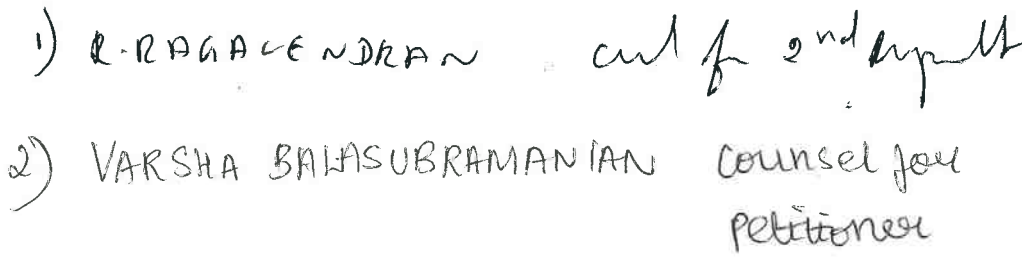 1) R.RAGAVENDRAN for 2nd
2) VARSHA BALASUBRAMANIAN counsel for
petitioner